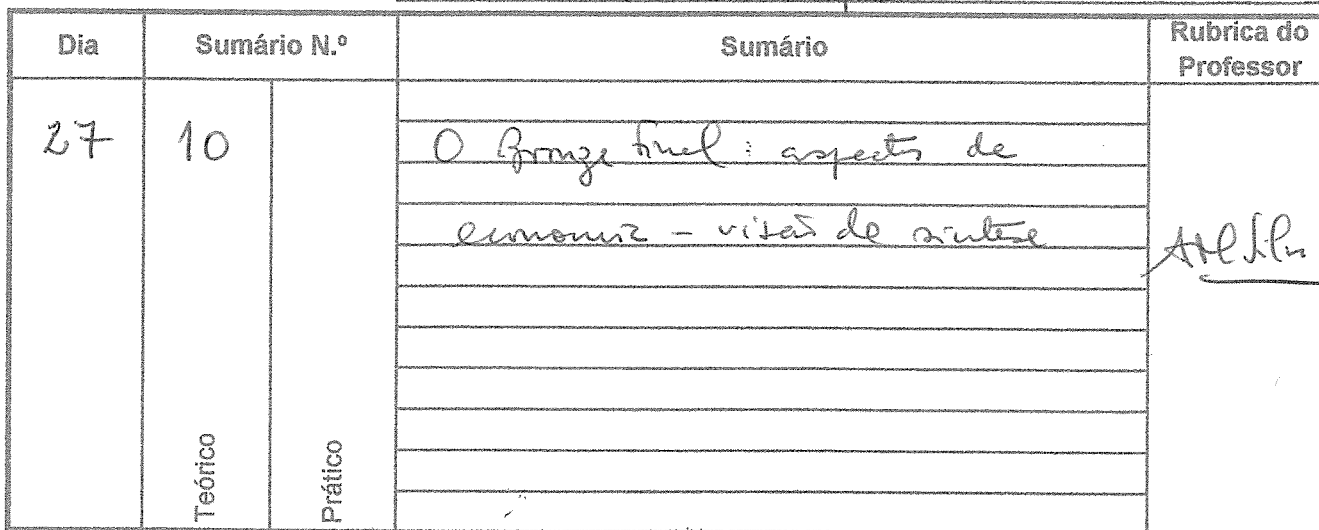 Dia Sumário N.º Sumário Rubrica do Professor
27 10 O Bronze final: aspectos de
economia - visão de síntese
Teórico Prático